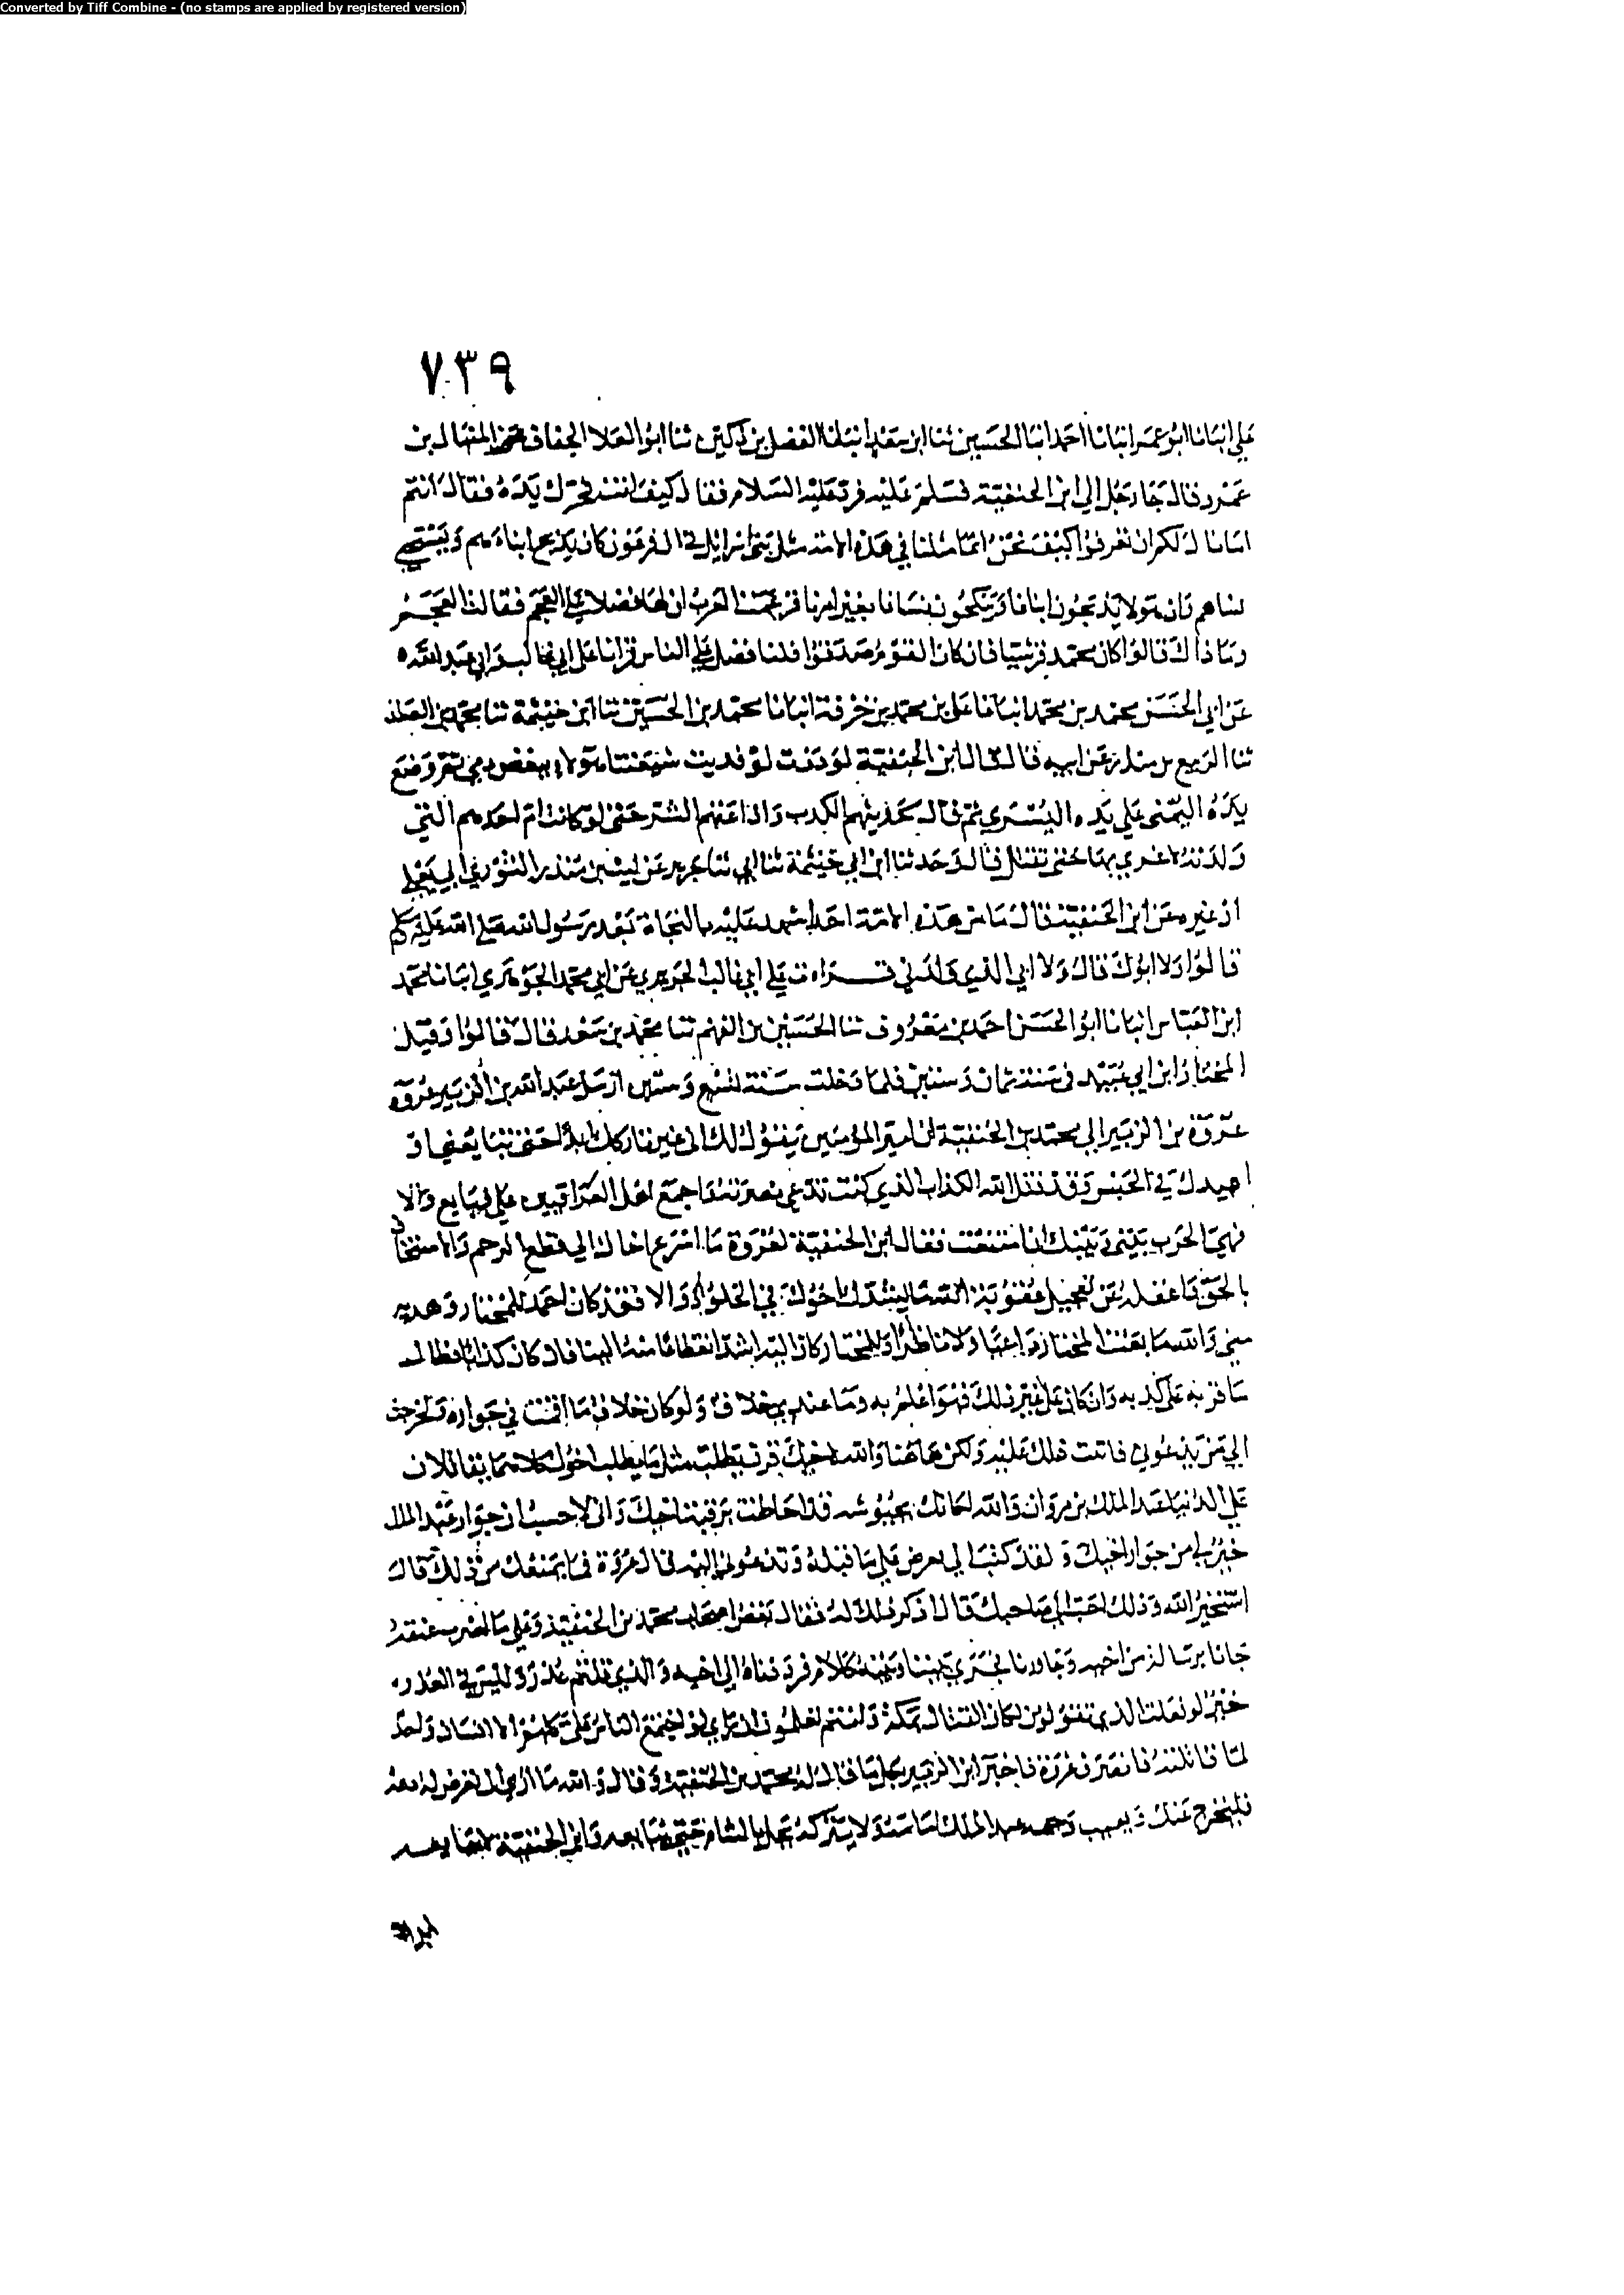 Converted by Tiff Combine - (no stamps are applied by registered version)
٧٣٩
علي انبانا ابو عمر انبانا احمد انبا الحسين ثنا ابن سعد انبانا الفضل بن دكين ثنا ابو العلا الخفاف عن المنهال بن
عمرو قال جا رجل الي ابن الحنفية فسلم عليه فرد عليه السلام فقال كيف انت فحرك يده فقال انتم
اما ان لكم ان تعرفوا كيف نحن انما مثلنا في هذه الامة مثل بني اسرايل في ال فرعون كان يذبح ابناءهم ويستحيي
نساهم وان هولا يذبحون ابنانا وينكحون نسانا بغير امرنا فزعمت العرب ان لها فضلا علي العجم فقالت العجم
وما ذاك قالوا كان محمد قال القوم صدقتوا فلنا فضل علي الناس قرانا علي ابي غالب وابي عبد الله
عن ابي الحسن محمد بن محمد انبانا علي بن محمد بن خزفة انبانا محمد بن الحسين ثنا ابن خيثمة ثنا محمد بن الصلت
ثنا الربيع بن منذر عن ابيه قال قال ابن الحنفية لوددت لو فديت شيعتنا هولاء ببعض دمي ثم وضع
يده اليمني علي يده اليسري ثم قال لحديثهم الكذب واذاعتهم الشر حتي لو كانت ام احدهم التي
ولدته لاغري بها حتي تقتل قال وحدثنا ابن ابي خيثمة ثنا ابي ثنا جرير عن ليث عن منذر الثوري ابي يعلي
او غيره عن ابن الحنفية قال ما من هذه الامة احد اشهد عليه بالنجاة بعد رسول الله صلي الله عليه وسلم
قالوا ولا ابوك قال ولا ابي الذي ولدني قرات علي ابي غالب الحريري عن ابي محمد الجوهري انبانا محمد
ابن العباس انبانا ابو الحسن احمد بن معروف ثنا الحسين بن الفهم ثنا محمد بن سعد قال قالوا وقتل
المختار ابن ابي عبيد في سنة ثمان وستين فلما دخلت سنة تسع وستين ارسل عبد الله بن الزبير عروة
عروة بن الزبير الي محمد بن الحنفية ان امير المومنين يقول لك اني غير تاركك ابدا حتي تبايعني او
اعيدك في الحبس وقد قتل الله الكذاب الذي كنت تدعي نصرته واجمع اهل العراقين علي فبايع والا
فهي الحرب بيني وبينك ان امتنعت فقال ابن الحنفية لعروة ما اسرع اخاك الي قطع الرحم والاستخفاف
بالحق واغفله عن تعجيل عقوبة الله ما يشك اخوك في الخلود والا فقد كان احمد للمختار ولهديه
مني والله ما بعثت المختار داعيا ولا ناظرا وللمختار كان اليه اشد انقطاعا منه الينا فان كان كذابا فطال
ما قربه علي كذبه وان كان علي غير ذلك فهو اعلم به وما عندي خلاف ولو كان خلاف ما اقمت في جواره ولخرجت
الي من يدعوني فابيت ذلك عليه ولكن هاهنا والله لاخيك قرن يطلب مثل ما يطلب اخوك كلاهما يقاتلان
علي الدنيا عبد الملك بن مروان والله لكانك بجيوشه قد احاطت برقبة اخيك واني لاحسب ان جوار عبد الملك
خير لي من جوار اخيك ولقد كتب الي يعرض علي ما قبله وتدعوني اليه قال عروة فما يمنعك من ذلك قال
استخير الله وذلك احب الي صاحبك قال اذكر ذلك له فقال بعض اصحاب محمد بن الحنفية وعلي ما نضرب عنقه
جانا برسالة من اخيه وجاورنا فجري بيننا وبينه كلام فرددناه الي اخيه والذي قلتم غدر وليس في الغدر
خير لو فعلت الذي تقولون لكان القتال بمكة وانتم تعلمون ان رايي لو اجتمع الناس علي كلهم الا انسان واحد
لما قاتلته فانصرف عروة فاخبر ابن الزبير بكل ما قال له محمد بن الحنفية وقال والله ما اري ان تعرض له دعه
فليخرج عنك ويغيب وجهه فعبد الملك امامه ولا يتركه يحل بالشام حتي يبايعه وابن الحنفية لا يبايعه